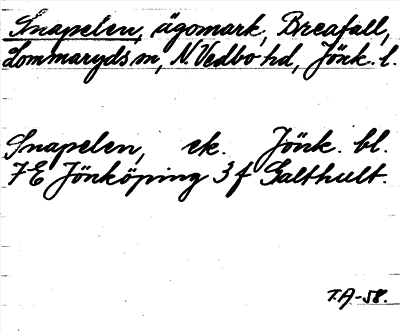 Snapelen, ägomark, Breafall,
Lommaryds sn, N. Vedbo hd, Jönk. l.
Snapelen, ek. Jönk. bl.
7E Jönköping 3 f Galthult.
T.A-58.